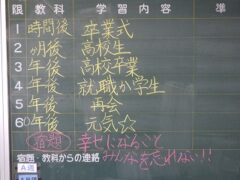 限 教科 学習内容 準
1 時間後 卒業式
2 ヶ月後 高校生
3 年後 高校卒業
4 年後 就職か学生
5 年後 再会
60 年後 元気☆
宿題 幸せになること
みんなを忘れない!!
宿題・教科からの連絡
A週